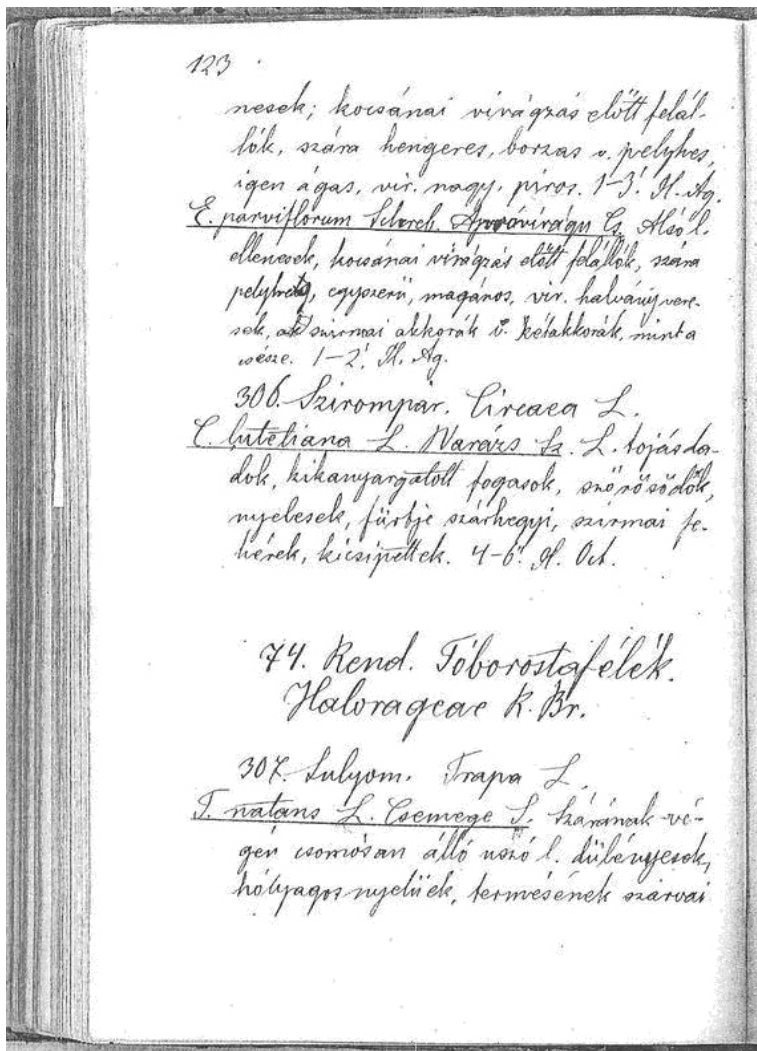 123
nesek; kocsánai virágzás előtt felál-
lók, szára hengeres, borzas v. pelyhes,
igen ágas, vir. nagy, piros. 1-3'. Jl. Ag.
E. parviflorum Schreb. Apróvirágu Cs. Alsó l.
ellenesek, kocsánai virágzás előtt felállók, szára
pelyhes, egyszerü, magános, vir. halványvere-
sek, szirmai akkorák v. kétakkorák, mint a
csésze. 1-2'. Jl. Ag.
306. Szirompár. Circaea L.
C. lutetiana L. Warázs Sz. L. tojásda-
dok, kikanyargatott fogasok, szőrösödők,
nyelesek, fürtje szárhegyi, szirmai fe-
hérek, kicsipettek. 4-6". Jl. Oct.
74. Rend. Tóborostafélék.
Halorageae R. Br.
307. Sulyom. Trapa L.
T. natans L. Csemege S. Szárának vé-
gén csomósan álló uszó l. dülényesek,
hólyagos nyelüek, termésének szarvai